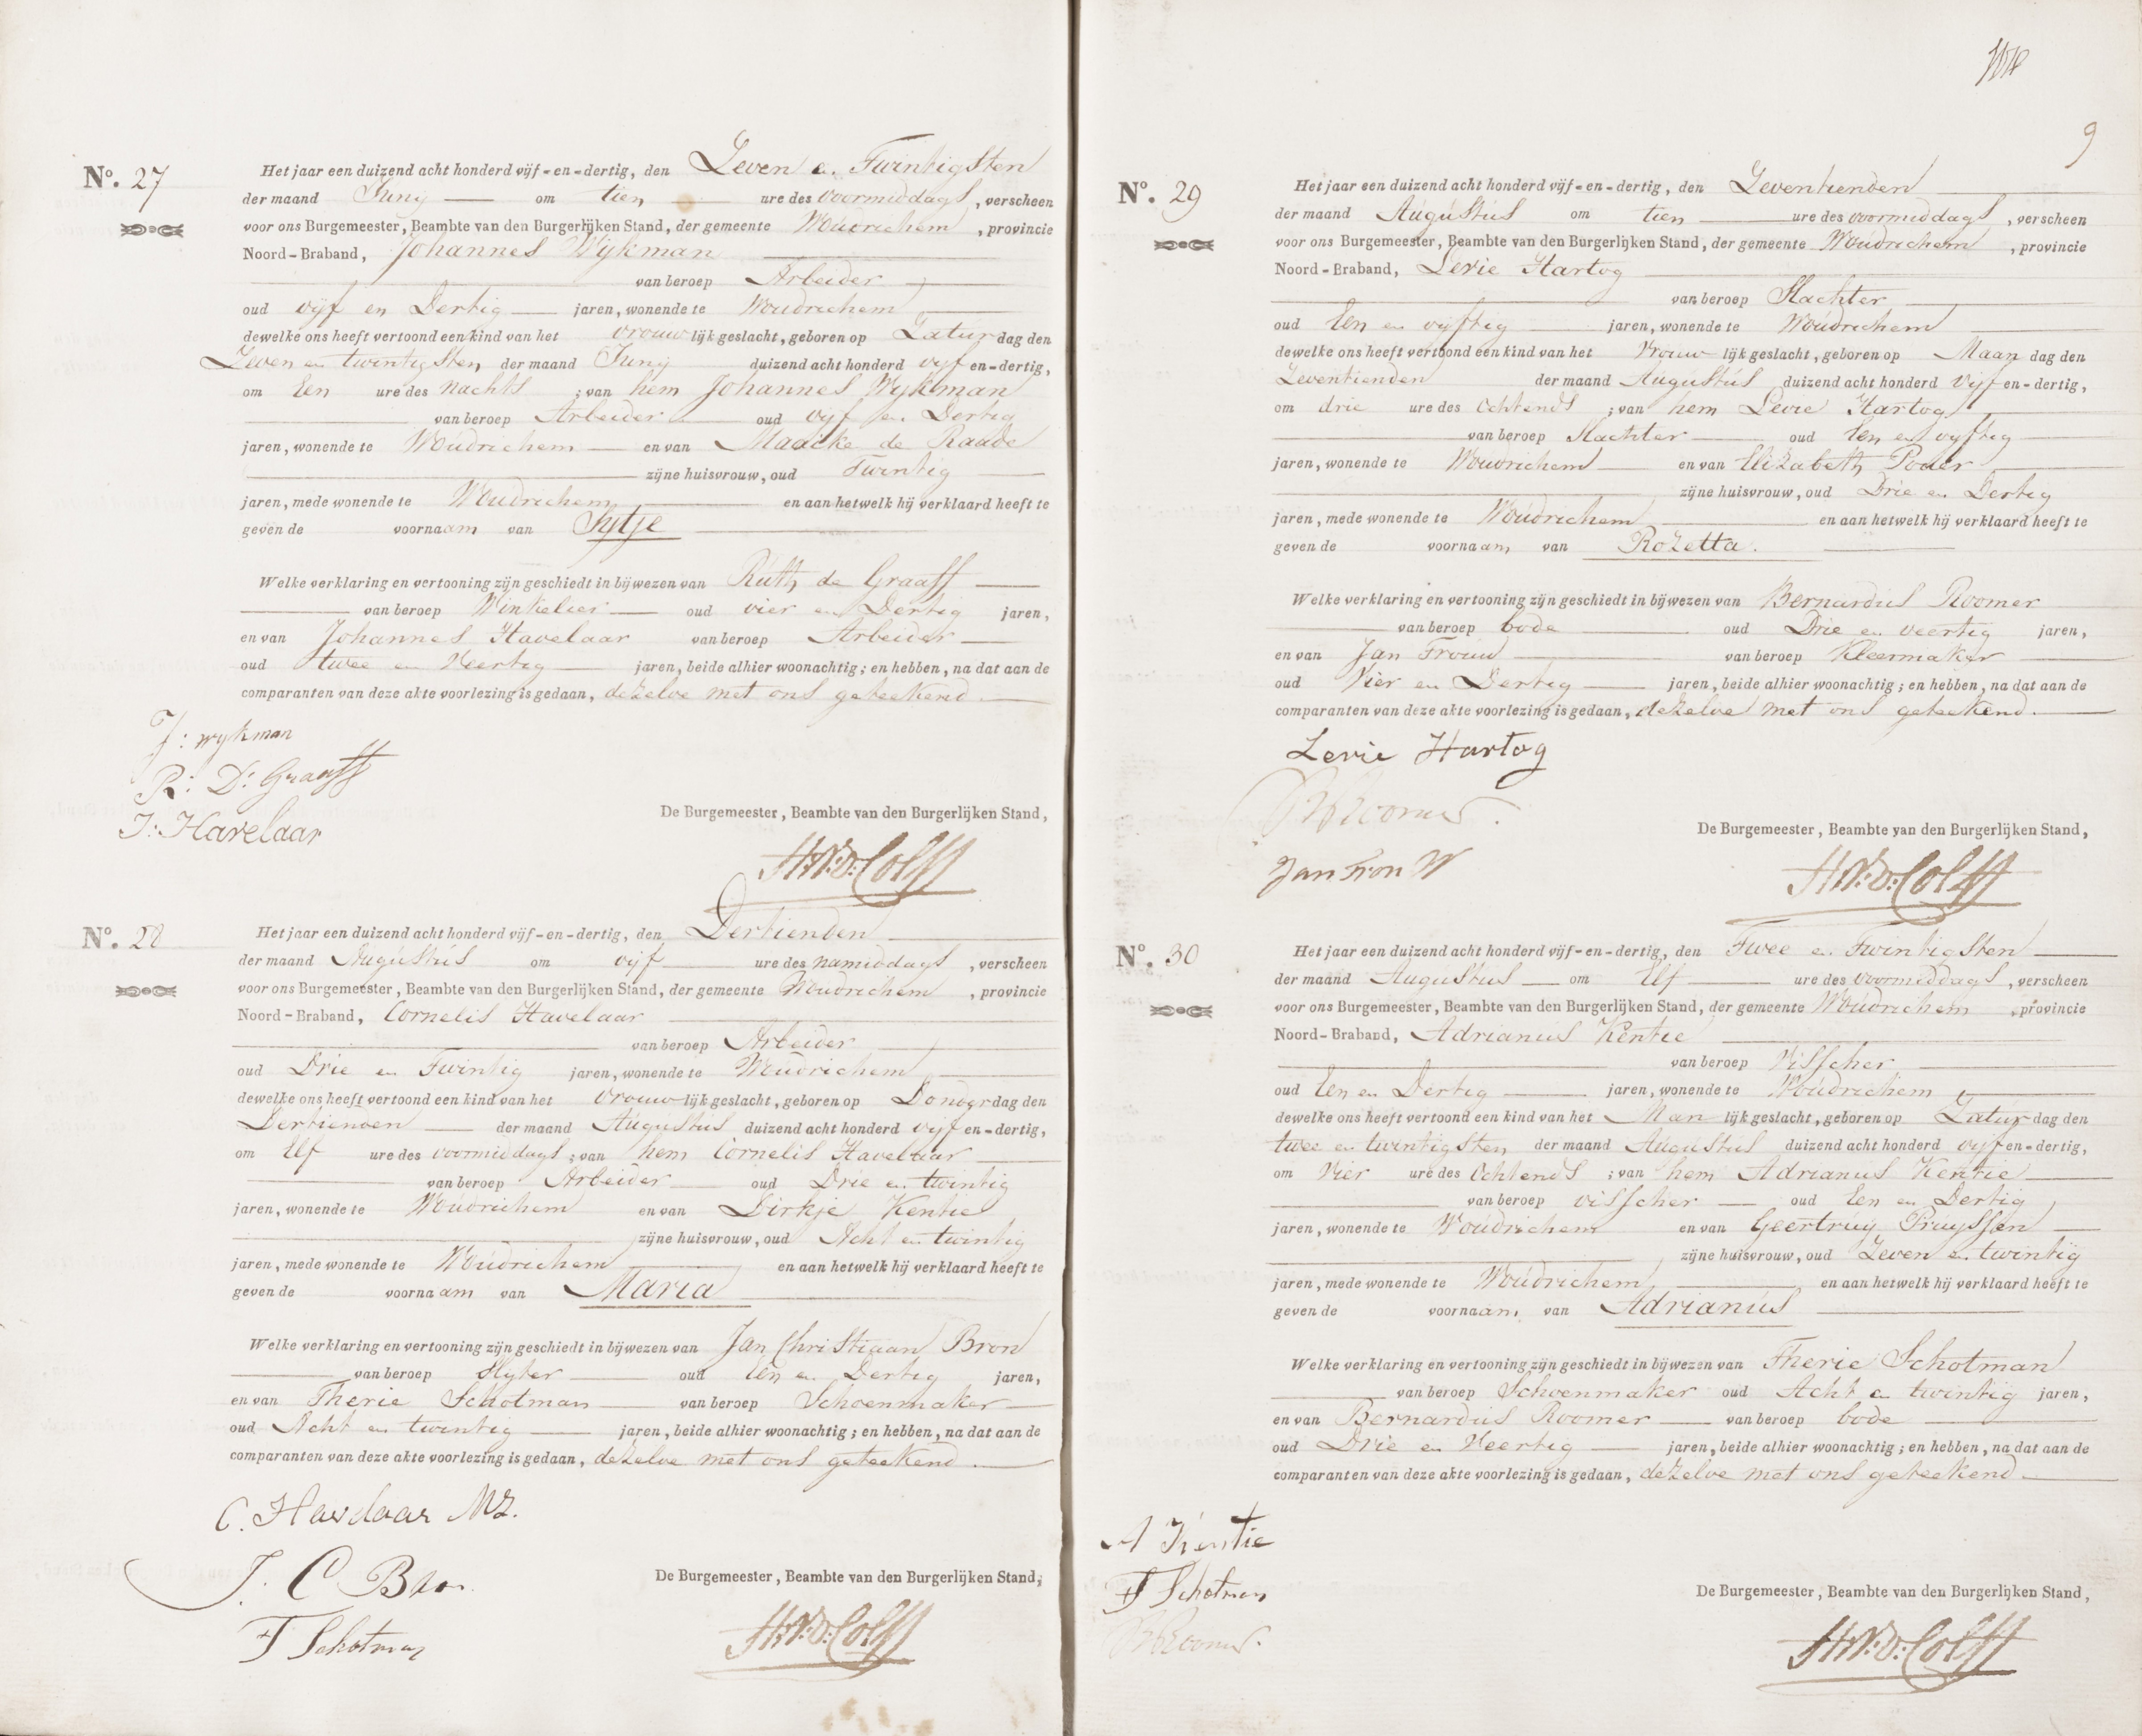 N.º 27
Het jaar een duizend acht honderd vijf-en-dertig, den Zeven en Twintigsten
der maand Junij om tien ure des voormiddags, verscheen
voor ons Burgemeester, Beambte van den Burgerlijken Stand, der gemeente Woudrichem, provincie
Noord-Braband, Johannes Wijkman
van beroep Arbeider
oud vijf en Dertig jaren, wonende te Woudrichem
dewelke ons heeft vertoond een kind van het vrouwlijk geslacht, geboren op Zaturdag den
Zeven en twintigsten der maand Junij duizend acht honderd vijf en-dertig,
om Een ure des nachts; van hem Johannes Wijkman
van beroep Arbeider oud vijf en Dertig
jaren, wonende te Woudrichem en van Maaike de Raade
zijne huisvrouw, oud Twintig
jaren, mede wonende te Woudrichem en aan hetwelk hij verklaard heeft te
geven de voornaam van Sijtje
Welke verklaring en vertooning zijn geschiedt in bijwezen van Ruth de Graaff
van beroep Winkelier oud vier en Dertig jaren,
en van Johannes Havelaar van beroep Arbeider
oud twee en Veertig jaren, beide alhier woonachtig; en hebben, na dat aan de
comparanten van deze akte voorlezing is gedaan, dezelve met ons geteekend.
J: wykman
R: D: Graaff
J: Havelaar
De Burgemeester, Beambte van den Burgerlijken Stand,
N.º 28
Het jaar een duizend acht honderd vijf-en-dertig, den Dertienden
der maand Augustus om vijf ure des namiddags, verscheen
voor ons Burgemeester, Beambte van den Burgerlijken Stand, der gemeente Woudrichem, provincie
Noord-Braband, Cornelis Havelaar
van beroep Arbeider
oud Drie en Twintig jaren, wonende te Woudrichem
dewelke ons heeft vertoond een kind van het vrouwlijk geslacht, geboren op Donderdag den
Dertienden der maand Augustus duizend acht honderd vijf en-dertig,
om Elf ure des voormiddags; van hem Cornelis Havelaar
van beroep Arbeider oud Drie en twintig
jaren, wonende te Woudrichem en van Dirkje Kentie
zijne huisvrouw, oud Acht en twintig
jaren, mede wonende te Woudrichem en aan hetwelk hij verklaard heeft te
geven de voornaam van Maria
Welke verklaring en vertooning zijn geschiedt in bijwezen van Jan Christiaan Bron
van beroep Slijter oud Een en Dertig jaren,
en van Therie Schotman van beroep Schoenmaker
oud Acht en twintig jaren, beide alhier woonachtig; en hebben, na dat aan de
comparanten van deze akte voorlezing is gedaan, dezelve met ons geteekend.
C. Havelaar MZ.
J. C Bron
T Schotman
De Burgemeester, Beambte van den Burgerlijken Stand,
9
N.º 29
Het jaar een duizend acht honderd vijf-en-dertig, den Zeventienden
der maand Augustus om tien ure des voormiddags, verscheen
voor ons Burgemeester, Beambte van den Burgerlijken Stand, der gemeente Woudrichem, provincie
Noord-Braband, Levie Hartog
van beroep Slachter
oud Een en vijftig jaren, wonende te Woudrichem
dewelke ons heeft vertoond een kind van het Vrouwlijk geslacht, geboren op Maandag den
Zeventienden der maand Augustus duizend acht honderd Vijf en-dertig,
om drie ure des Ochtends; van hem Levie Hartog
van beroep Slachter oud Een en vijftig
jaren, wonende te Woudrichem en van Elizabeth Poder
zijne huisvrouw, oud Drie en Dertig
jaren, mede wonende te Woudrichem en aan hetwelk hij verklaard heeft te
geven de voornaam van Rozetta.
Welke verklaring en vertooning zijn geschiedt in bijwezen van Bernardus Roomer
van beroep bode oud Drie en veertig jaren,
en van Jan Trouw van beroep Kleermaker
oud Vier en Dertig jaren, beide alhier woonachtig; en hebben, na dat aan de
comparanten van deze akte voorlezing is gedaan, dezelve met ons geteekend.
Levie Hartog
Roomer.
Jan Trou W
De Burgemeester, Beambte van den Burgerlijken Stand,
N.º 30
Het jaar een duizend acht honderd vijf-en-dertig, den Twee en Twintigsten
der maand Augustus om Elf ure des voormiddags, verscheen
voor ons Burgemeester, Beambte van den Burgerlijken Stand, der gemeente Woudrichem, provincie
Noord-Braband, Adrianus Kentie
van beroep Visscher
oud Een en Dertig jaren, wonende te Woudrichem
dewelke ons heeft vertoond een kind van het Manlijk geslacht, geboren op Zaturdag den
twee en twintigsten der maand Augustus duizend acht honderd vijf en-dertig,
om Vier ure des Ochtends; van hem Adrianus Kentie
van beroep visscher oud Een en Dertig
jaren, wonende te Woudrichem en van Geertruy Pruyssen
zijne huisvrouw, oud Zeven en twintig
jaren, mede wonende te Woudrichem en aan hetwelk hij verklaard heeft te
geven de voornaam van Adrianus
Welke verklaring en vertooning zijn geschiedt in bijwezen van Therie Schotman
van beroep Schoenmaker oud Acht en twintig jaren,
en van Bernardus Roomer van beroep bode
oud Drie en Veertig jaren, beide alhier woonachtig; en hebben, na dat aan de
comparanten van deze akte voorlezing is gedaan, dezelve met ons geteekend.
A Kentie
T Schotman
Roomer.
De Burgemeester, Beambte van den Burgerlijken Stand,